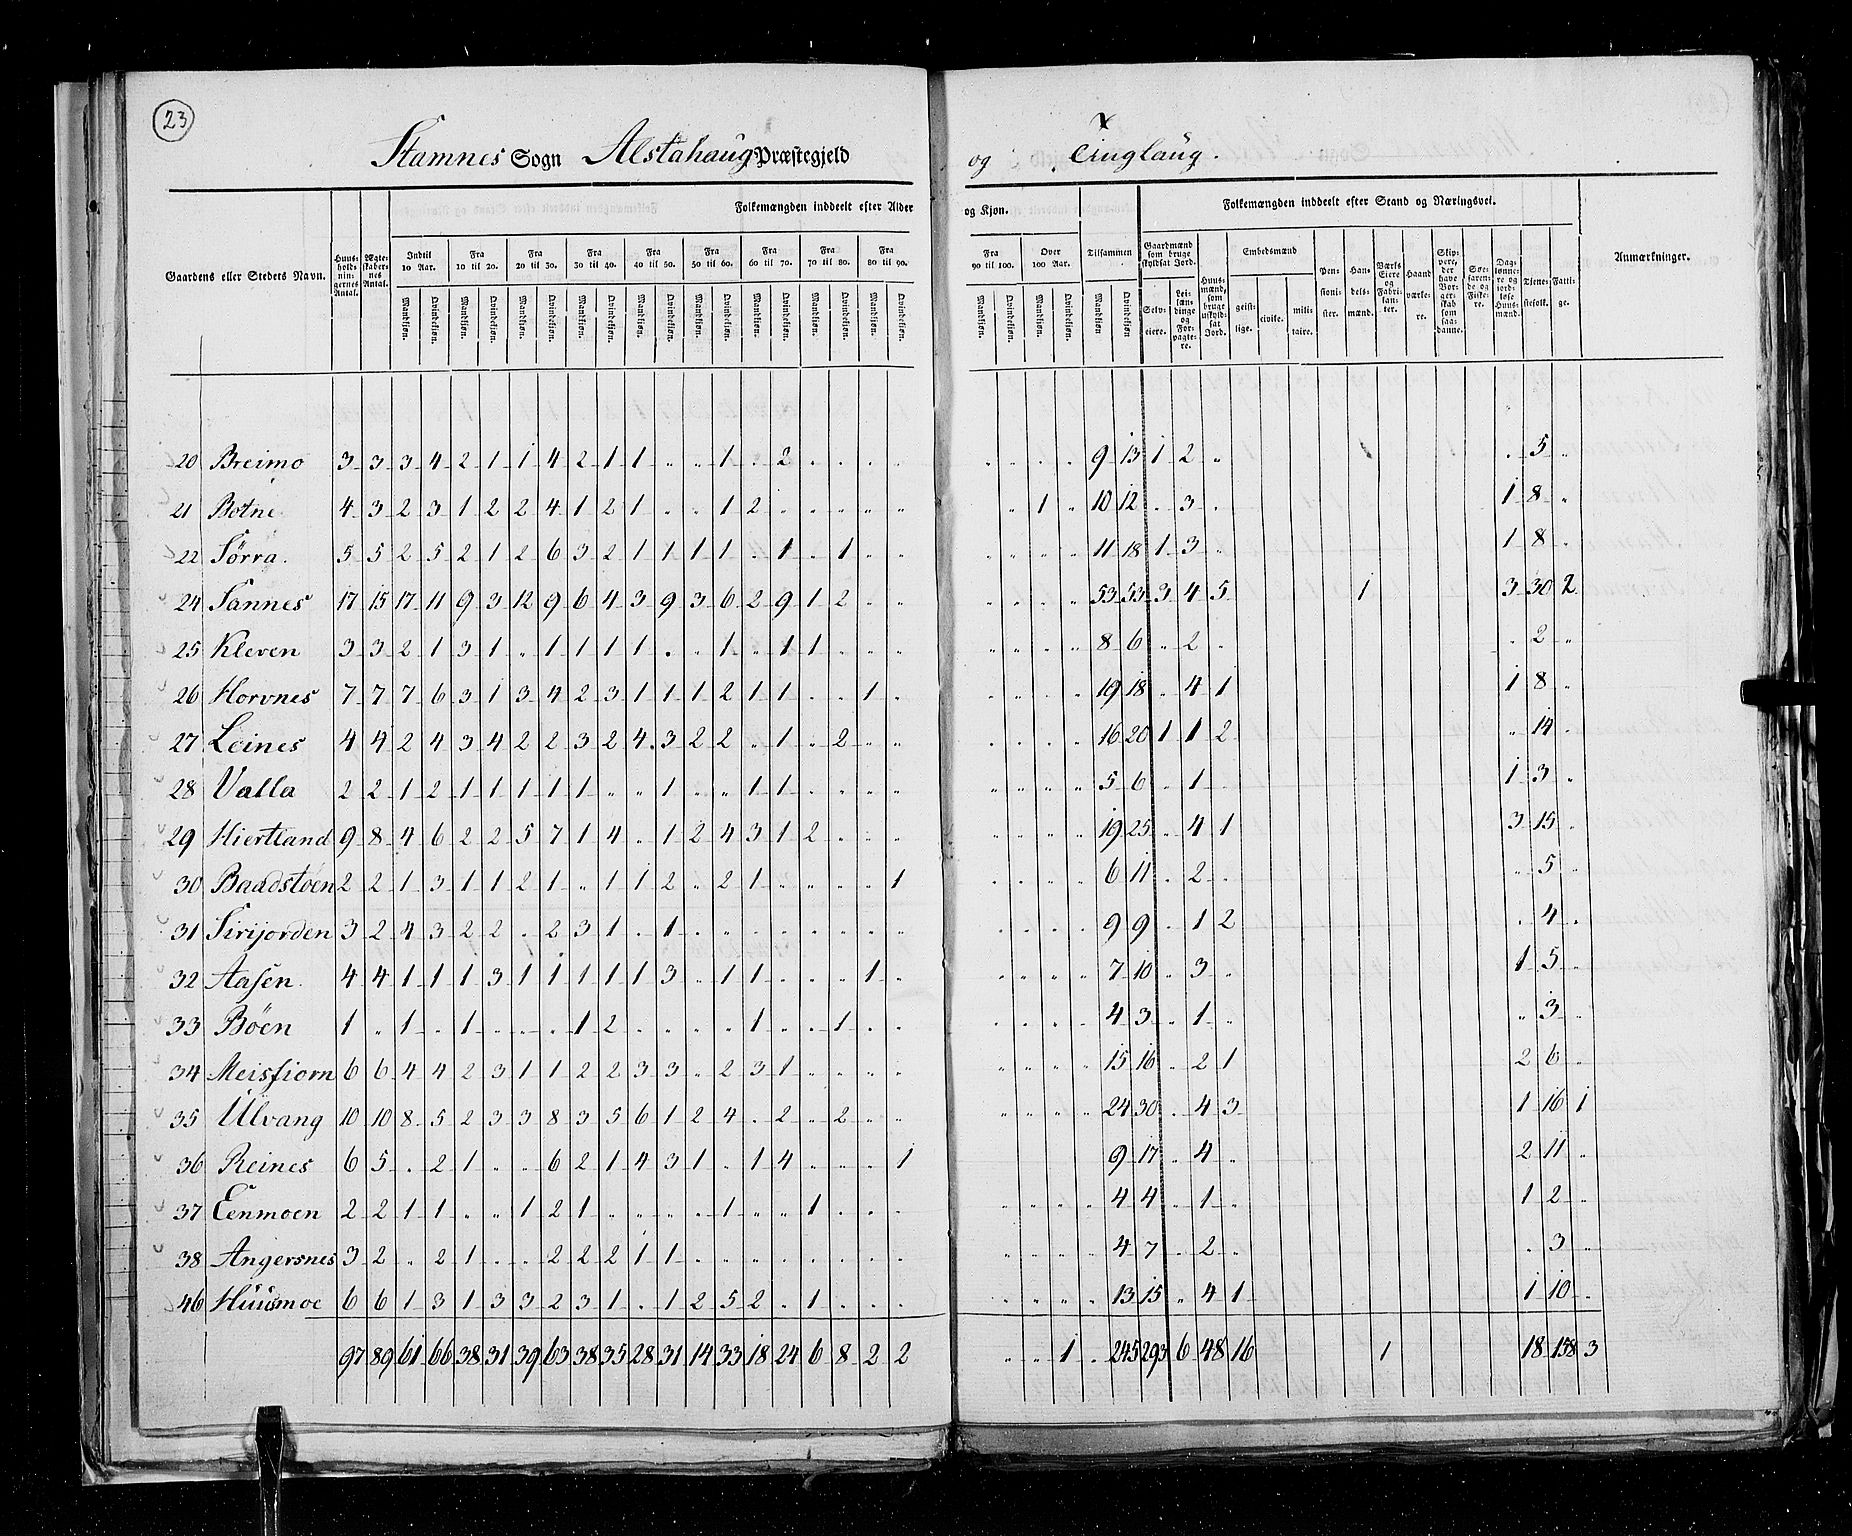 23
Stamnes Sogn Alstahaug Præstegjeld og Tinglaug.
Folkemængden inddeelt efter Alder og Kjøn. Folkemængden inddeelt efter Stand og Næringsvei.
Gaardens eller Stedets Navn. Huusholdningernes Antal. Ægteskabernes Antal. Indtil 10 Aar. Fra 10 til 20. Fra 20 til 30. Fra 30 til 40. Fra 40 til 50. Fra 50 til 60. Fra 60 til 70. Fra 70 til 80. Fra 80 til 90. Fra 90 til 100. Over 100 Aar. Tilsammen Gaardmænd som bruge skyldsat Jord. Huusmænd, som bruge uskyldsat Jord. Embedsmænd Pensionister. Handelsmænd. Værks Eiere og Fabrikanter. Haandværkere. Skippere, der have Borgerskab som saadanne. Søefarende og Fiskere. Daglønnere og jordløse Huusmænd. Tjenestefolk. Fattige. Anmærkninger.
Mandkjøn. Qvindekjøn. Mandkjøn. Qvindekjøn. Mandkjøn. Qvindekjøn. Mandkjøn. Qvindekjøn. Mandkjøn. Qvindekjøn. Mandkjøn. Qvindekjøn. Mandkjøn. Qvindekjøn. Mandkjøn. Qvindekjøn. Mandkjøn. Qvindekjøn. Mandkjøn. Qvindekjøn. Mandkjøn. Qvindekjøn. Mandkjøn Qvindekjøn Selveiere. Leilændinge og Forpagtere. geistlige. civile. militaire.
20 Breimo 3 3 3 4 2 1 1 4 2 1 1 „ „ 1 . 2 . . . . . . . . 9 13 1 2 „ . 5 „
21 Botne 4 3 2 3 1 2 2 4 1 2 1 . . 1 2 . . . . . „ 1 „ 10 12 . 3 . 1 8 „
22 Sørra. 5 5 2 5 2 1 2 6 3 2 1 1 1 1 . 1 . 1 . . „ „ „ „ 11 18 1 3 „ 1 8 „
24 Sannes 17 15 17 11 9 3 12 9 6 4 3 9 3 6 2 9 1 2 . . . . . . 53 53 3 4 5 1 3 30 2
25 Kleven 3 3 2 1 3 1 „ 1 1 1 1 . . 1 „ 1 1 . . . „ „ „ „ 8 6 „ 2 . . 2 „
26 Horvnes 7 7 7 6 3 1 3 4 2 3 1 1 1 2 1 1 . . 1 . „ „ . . 19 18 . 4 1 1 8 „
27 Leines 4 4 2 4 3 4 2 2 3 2 4 3 2 2 „ 1 . 2 „ „ . . . . 16 20 1 1 2 „ 14 .
28 Valla 2 2 1 2 1 1 1 1 1 „ „ 1 „ „ 1 1 . . . . „ „ „ „ 5 6 . 1 . 1 3 „
29 Hiertland 9 8 4 6 2 2 5 7 1 4 . 1 2 4 3 1 2 . . . . . . . 19 25 . 4 1 3 15 „
30 Baadstøen 2 2 1 3 1 1 2 1 „ 1 1 2 „ 2 1 „ . . . 1 . . . . 6 11 „ 2 . „ 5 „
31 Sirijorden 3 2 4 3 2 2 . 2 3 1 . 1 . . . . . . . . . . . . 9 9 . 1 2 . 4 .
32 Aasen. 4 4 1 1 1 3 1 1 1 1 1 3 . 1 1 . . . 1 . „ „ „ „ 7 10 „ 3 „ 1 5 „
33 Böen 1 „ 1 . 1 . . . 1 2 . . . . 1 . . 1 . . . . . . 4 3 „ 1 „ „ 3 „
34 Meisfiorn 6 6 4 4 2 3 1 1 2 2 3 3 „ 2 3 1 . . . . „ „ „ „ 15 16 . 2 1 2 6 „
35 Ulvang 10 10 8 5 2 3 3 8 3 5 6 1 2 4 . 2 . 2 „ „ „ „ „ „ 24 30 . 4 3 1 16 1
36 Reines 6 5 . 2 1 „ „ 6 2 1 4 3 1 . 1 4 . . . 1 . . . . 9 17 . 4 „ 2 11 „
37 Eenmoen 2 2 1 1 „ „ 1 2 1 „ . . . 1 „ „ 1 . . . . . . . 4 4 „ 1 „ 1 2 „
38 Angersnes 3 2 „ 2 1 . . 2 2 2 1 1 . . . . . . . . . . . . 4 7 . 2 „ . 3 „
46 Huusmoe 6 6 1 3 1 3 3 2 3 1 . 1 2 5 2 . 1 . . . . „ „ „ 13 15 „ 4 1 1 10 .
97 89 61 66 38 31 39 63 38 35 28 31 14 33 18 24 6 8 2 2 „ „ 1 . 245 293 6 48 16 1 18 158 3